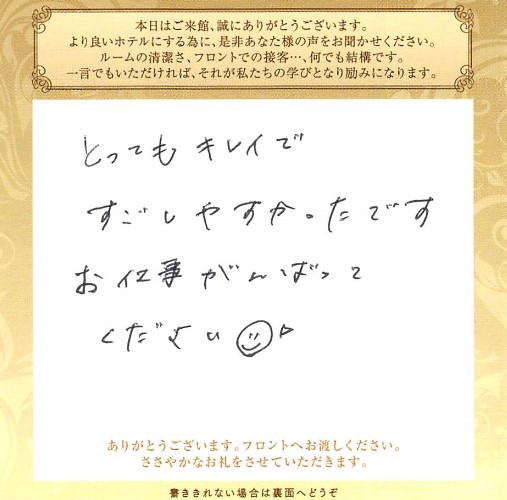 本日はご来館、誠にありがとうございます。
より良いホテルにする為に、是非あなた様の声をお聞かせください。
ルームの清潔さ、フロントでの接客…、何でも結構です。
一言でもいただければ、それが私たちの学びとなり励みになります。
とってもキレイで
すごしやすかったです
お仕事がんばって
ください
ありがとうございます。フロントへお渡しください。
ささやかなお礼をさせていただきます。
書ききれない場合は裏面へどうぞ